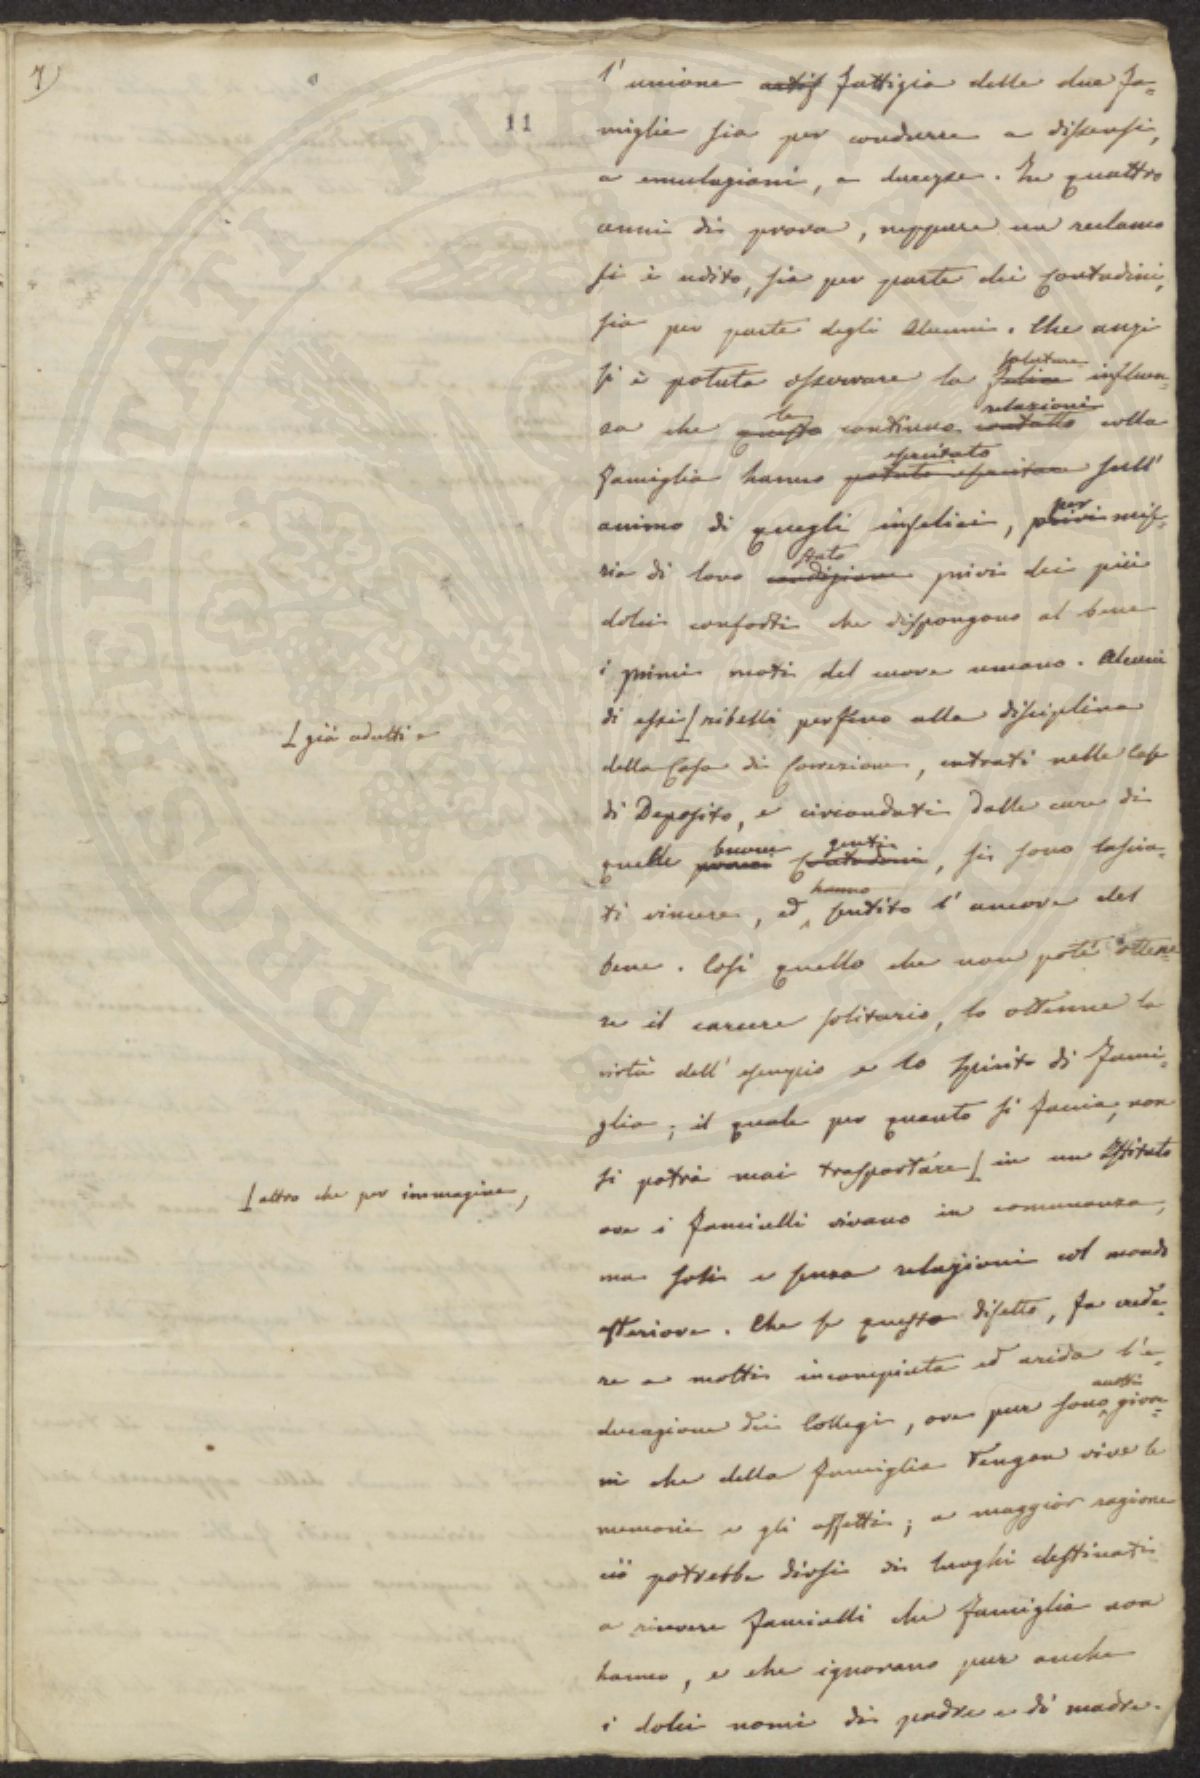 7)
11
l'unione fattizia delle due fa=
miglie sia per condurre a dissensi,
a emulazioni, a durezze. In quattro
anni di prova, neppure un reclamo
si è udito, sia per parte dei Contadini,
sia per parte degli Alunni. Che anzi
salutare
si è potuto osservare la felice influen=
le relazioni
za che questo continuo contatto colla
esercitato
famiglia hanno potuto esercitare sull'
per
animo di quegli infelici, privi mise=
stato
ria di loro condizione privi dei più
dolci conforti che dispongono al bene
i primi moti del cuore umano. Alcuni
di essi [ribelli persino alla disciplina
[già adulti e
della Casa di Correzione, entrati nelle Case
di Deposito, e circondati dalle cure di
buone genti
quelle Contadini, si sono lascia=
hanno
ti vincere, ed sentito l'amore del
bene. Così quello che non poté ottene=
re il carcere solitario, lo ottenne la
virtù dell'esempio e lo spirito di fami=
glia; il quale per quanto si faccia, non
si potrà mai trasportare [in un Istituto
[altro che per immagine,
ove i fanciulli vivano in comunanza,
ma soli e senza relazioni col mondo
esteriore. Che se questo difetto, fa crede=
re a molti incompiuta ed arida l'e=
ducazione dei Collegi, ove pur sono giova=
ni che della famiglia tengon vive le
memorie e gli affetti; a maggior ragione
ciò potrebbe dirsi di luoghi destinati
a ricevere fanciulli che famiglia non
hanno, e che ignorano pur anche
i dolci nomi di padre e di madre.
PROPRIETATI PUBLICAE